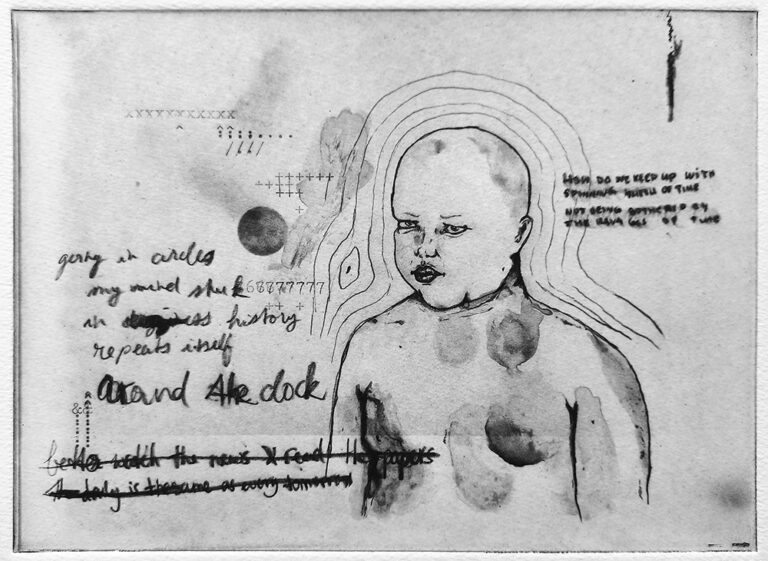 xxxxxxxxxxx
^
^^
:::::....
/////
+++++++
-+++
+
going in circles
my mind stuck
68777777
++
in history
repeats itself
around the clock
&
better watch the news & read the papers
the daily is thesame as every tomorrow
HOW DO WE KEEP UP WITH
SPINNING WHEEL OF TIME
NOT BEING BOTHERED BY
THE RAVAGES OF TIME